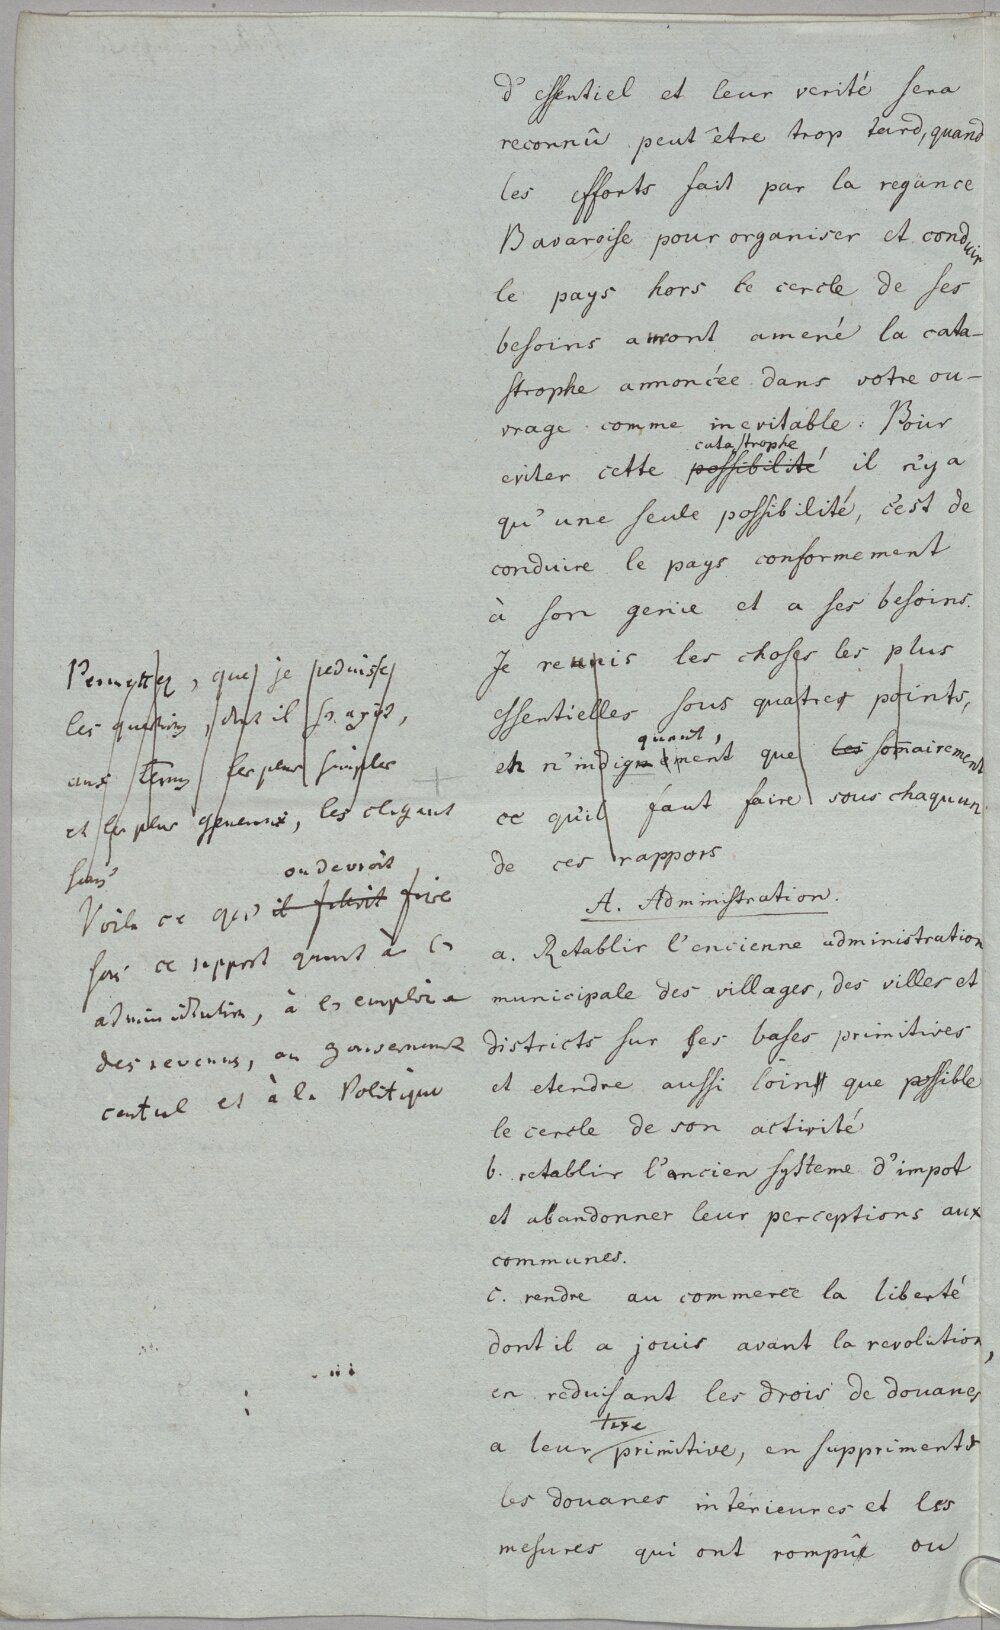 d'essentiel et leur verité sera
reconnû peut être trop tard, quand
les efforts fait par la regance
Bavaroise pour organiser et conduir
le pays hors le cercle de ses
besoins auront amené la cata-
strophe annoncée dans votre ou-
vrage comme inevitable. Pour
catastrophe
eviter cette possibilité il n'y a
qu'une seule possibilité, c'est de
conduire le pays conformement
à son genie et a ses besoins.
Je reunis les choses les plus
essentielles sous quatres points,
quant,
et n'indiquement que les somairement
ce qu'il faut faire sous chaquun
de ces rappors
A. Administration.
a. Retablir l'encienne administration
municipale des villages, des villes et
districts sur ses bases primitives
et etendre aussi loin que possible
le cercle de son activité
b. retablir l'ancien systeme d'impot
et abandonner leur perceptions aux
communes.
c. rendre au commerce la liberté
dont il a jouis avant la revolution,
en reduisant les drois de douanes
taxe
a leur primitive, en suppriments
les douanes intérieures et les
mesures qui ont rompûe ou
Permettez, que je reduisse
les questions, dont il s'agit,
aux termes les plus simples
et les plus generaux, les
sous
on devroit
Voila ce qu'il falloit faire
sous ce rapport quant à la
administration, à l'emploie
des revenus, au gouvernement
central et à la Politique